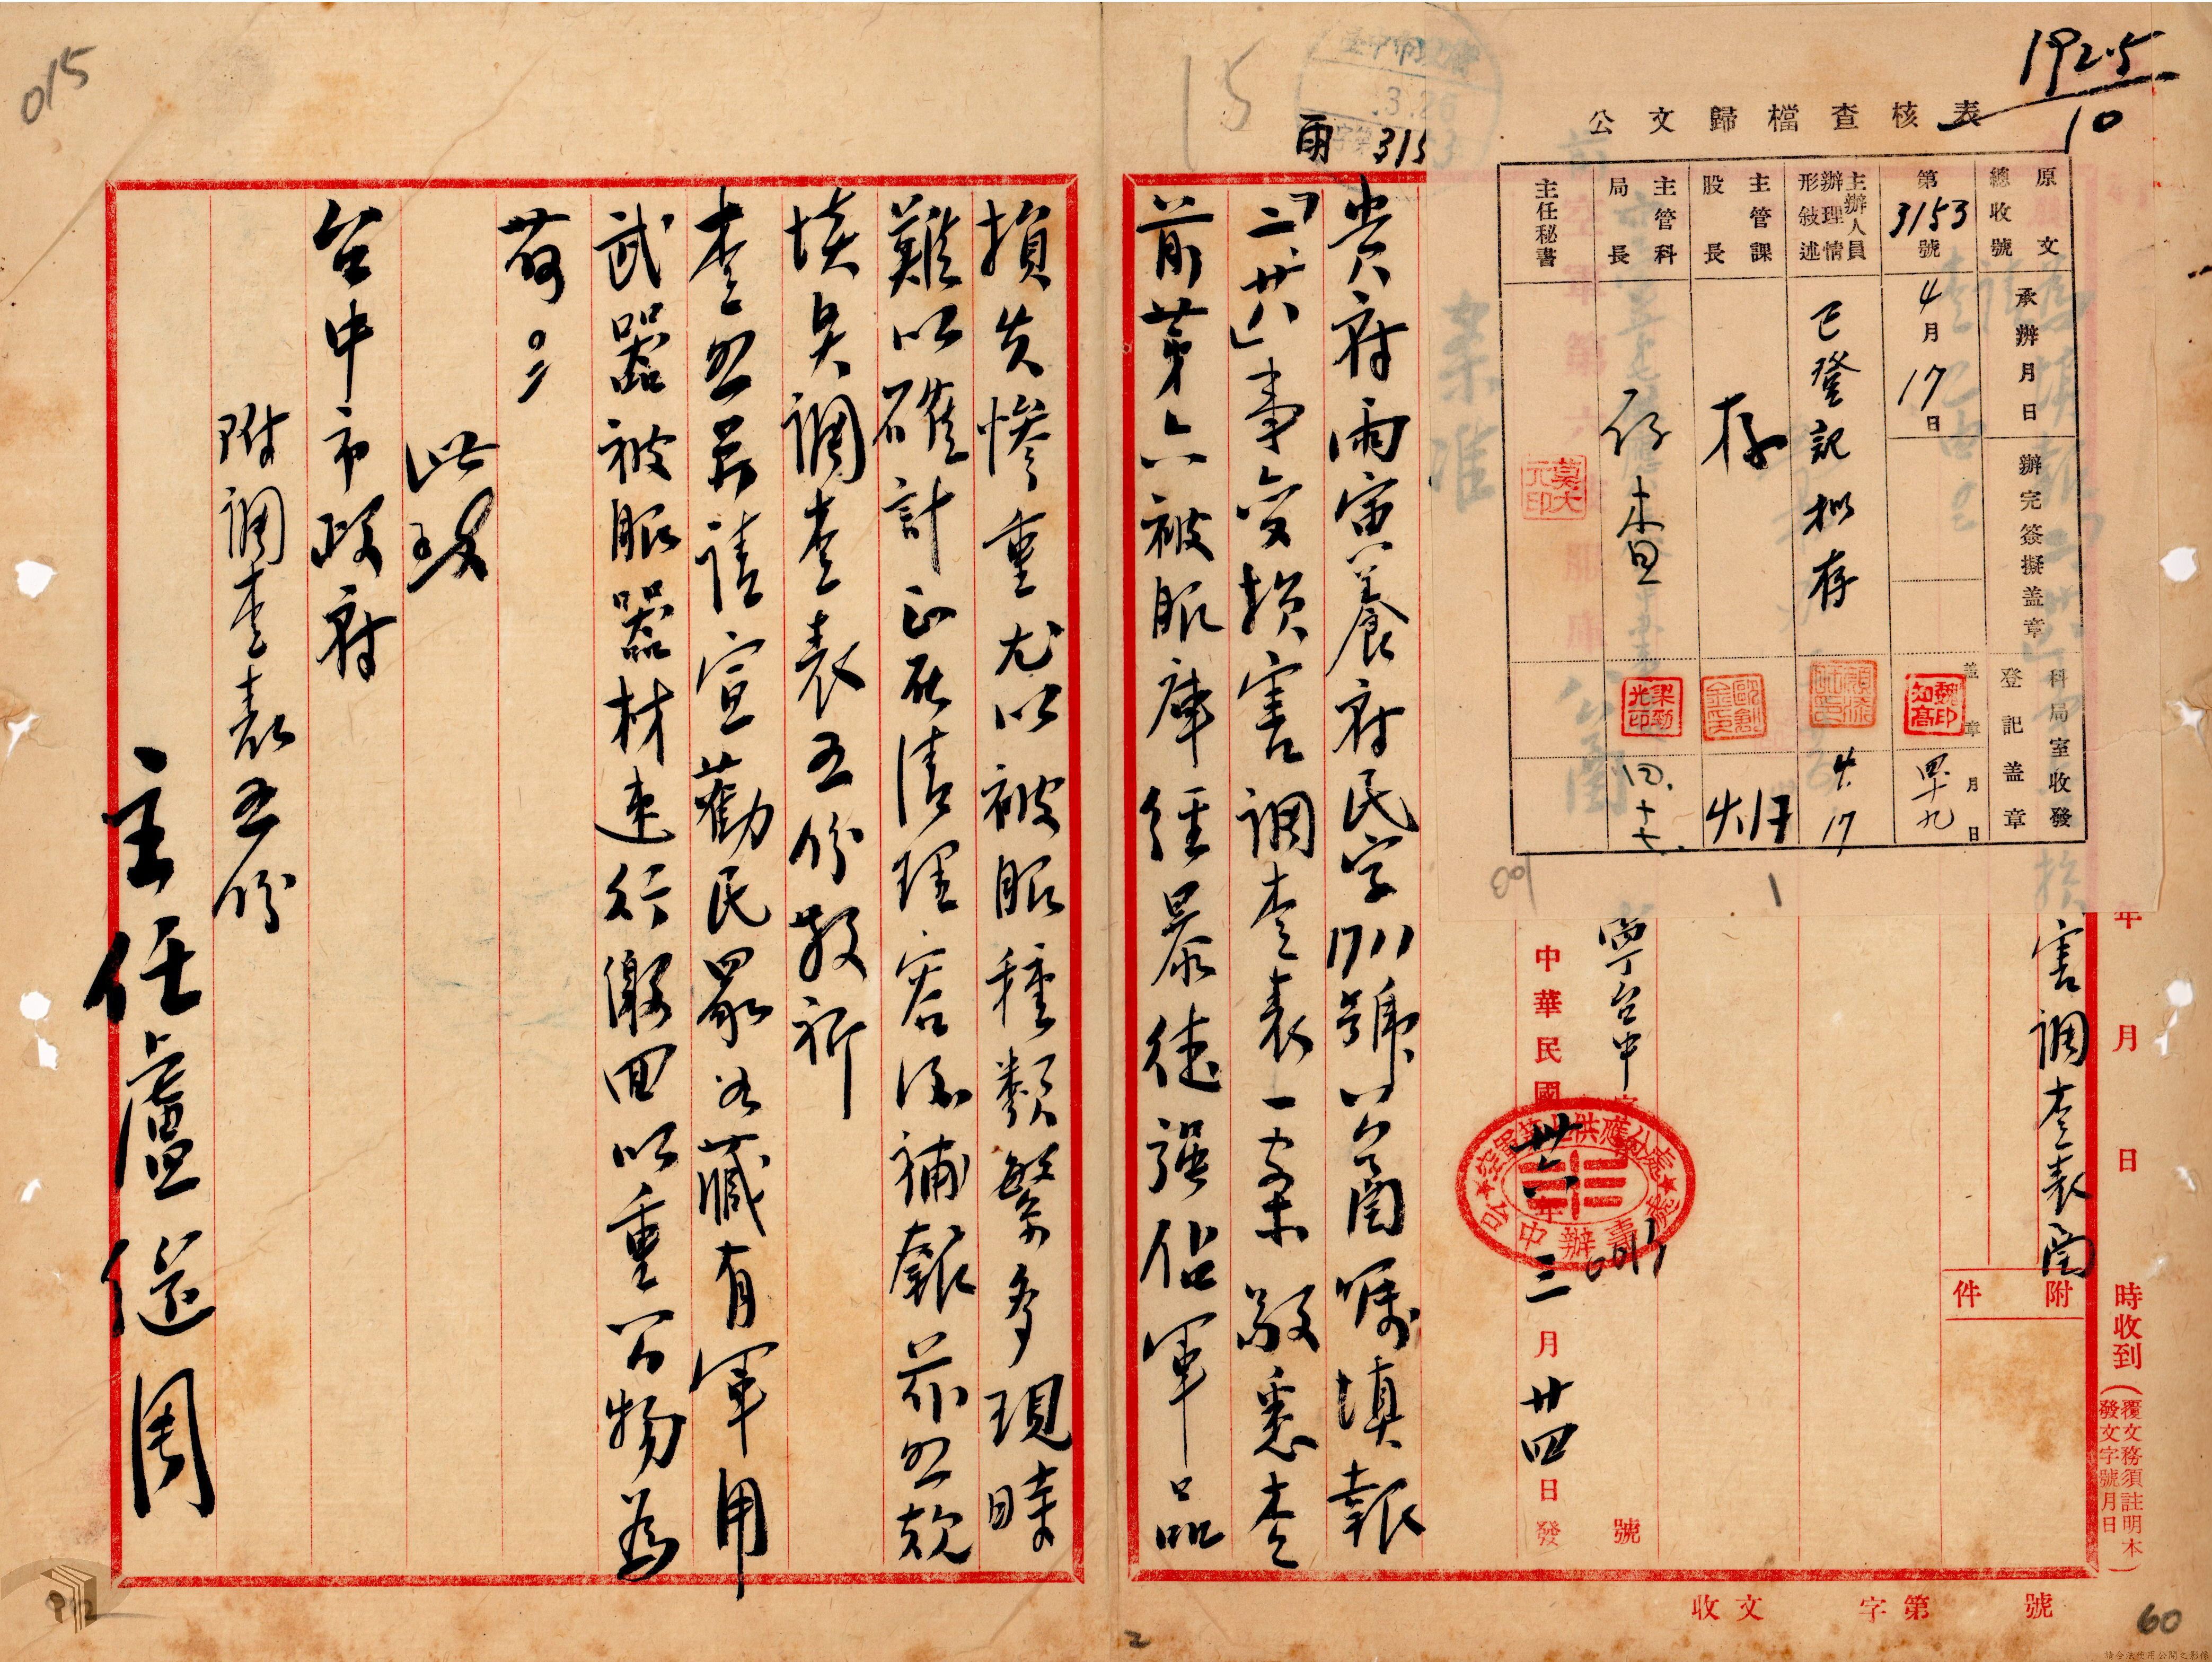 1925
10
公文歸檔查核表
原文
總收號
第3153號
主辦人員
辦理情形敘述
主管課
股長
主管科
局長
主任秘書
承辦月日
4月17日
已登記擬存
存
存查
辦完簽擬蓋章
科局室收發
登記蓋章
蓋章
月日
四九
4.17
4.17
四.十七.
魏印知高
莫大元印
害調查表函
附件
年月日時收到
(覆文務須註明本發文字號月日)
寧台中字
號
中華民國卅六年三月廿四日發
空軍第 供應分處
台中辦事處
收文 字第 號
015
15
3.26
雨 315
貴府雨寅養府民字1711號公函囑填報
「二、廿八」事變損害調查表一案敬悉查
前第六被服庫經暴徒強佔軍品
損失慘重尤以被服種類繁多現時
難以確計正在清理容後補報茲興欵
填具調查表五份敬祈
查照並請宣勸民眾如藏有軍用
武器被服器材速行繳回以重公物為
荷〻
此致
台中市政府
附調查表五份
主任盧繼周
60
2
請合法使用公開之影像